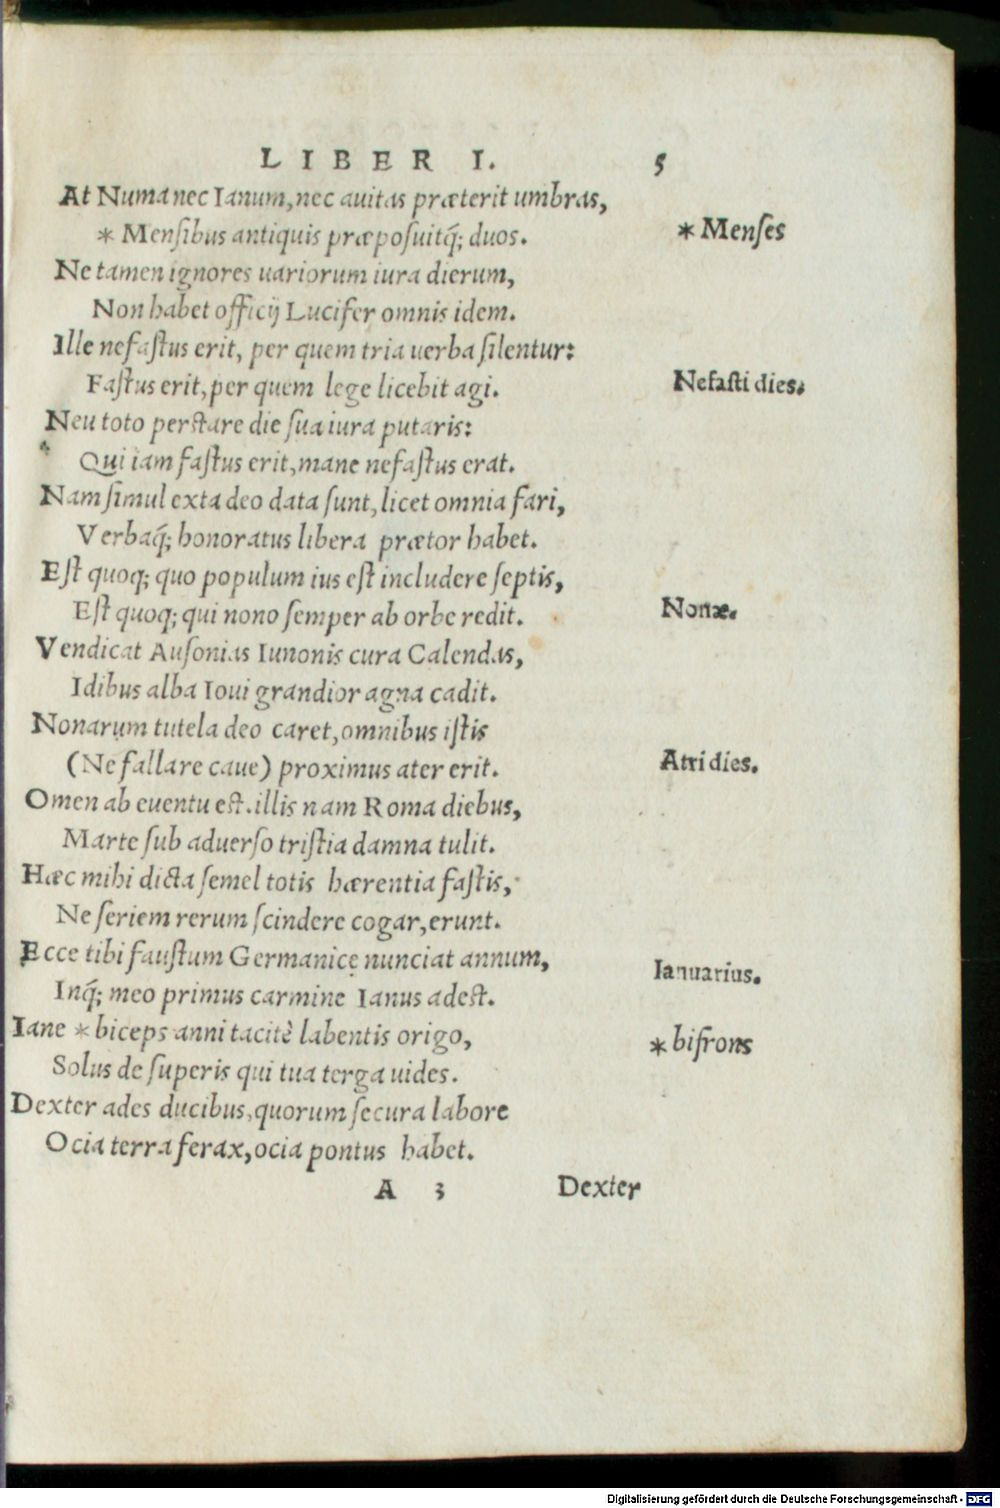 LIBER I. 5
At Numa nec Ianum, nec auitas præterit umbras,
* Mensibus antiquis præposuitq́; duos.
* Menses
Ne tamen ignores uariorum iura dierum,
Non habet officij Lucifer omnis idem.
Ille nefastus erit, per quem tria uerba silentur:
Fastus erit, per quem lege licebit agi.
Nefasti dies.
Neu toto perstare die sua iura putaris:
Qui iam fastus erit, mane nefastus erat.
Nam simul exta deo data sunt, licet omnia fari,
Verbaq́; honoratus libera prætor habet.
Est quoq; quo populum ius est includere septis,
Est quoq; qui nono semper ab orbe redit.
Nonæ.
Vendicat Ausonias Iunonis cura Calendas,
Idibus alba Ioui grandior agna cadit.
Nonarum tutela deo caret, omnibus istis
(Ne fallare caue) proximus ater erit.
Atri dies.
Omen ab euentu est. illis nam Roma diebus,
Marte sub aduerso tristia damna tulit.
Hæc mihi dicta semel totis hærentia fastis,
Ne seriem rerum scindere cogar, erunt.
Ecce tibi faustum Germanice nunciat annum,
Inq́; meo primus carmine Ianus adest.
Ianuarius.
Iane * biceps anni tacitè labentis origo,
* bifrons
Solus de superis qui tua terga uides.
Dexter ades ducibus, quorum secura labore
Ocia terra ferax, ocia pontus habet.
A 3 Dexter
Digitalisierung gefördert durch die Deutsche Forschungsgemeinschaft - DFG